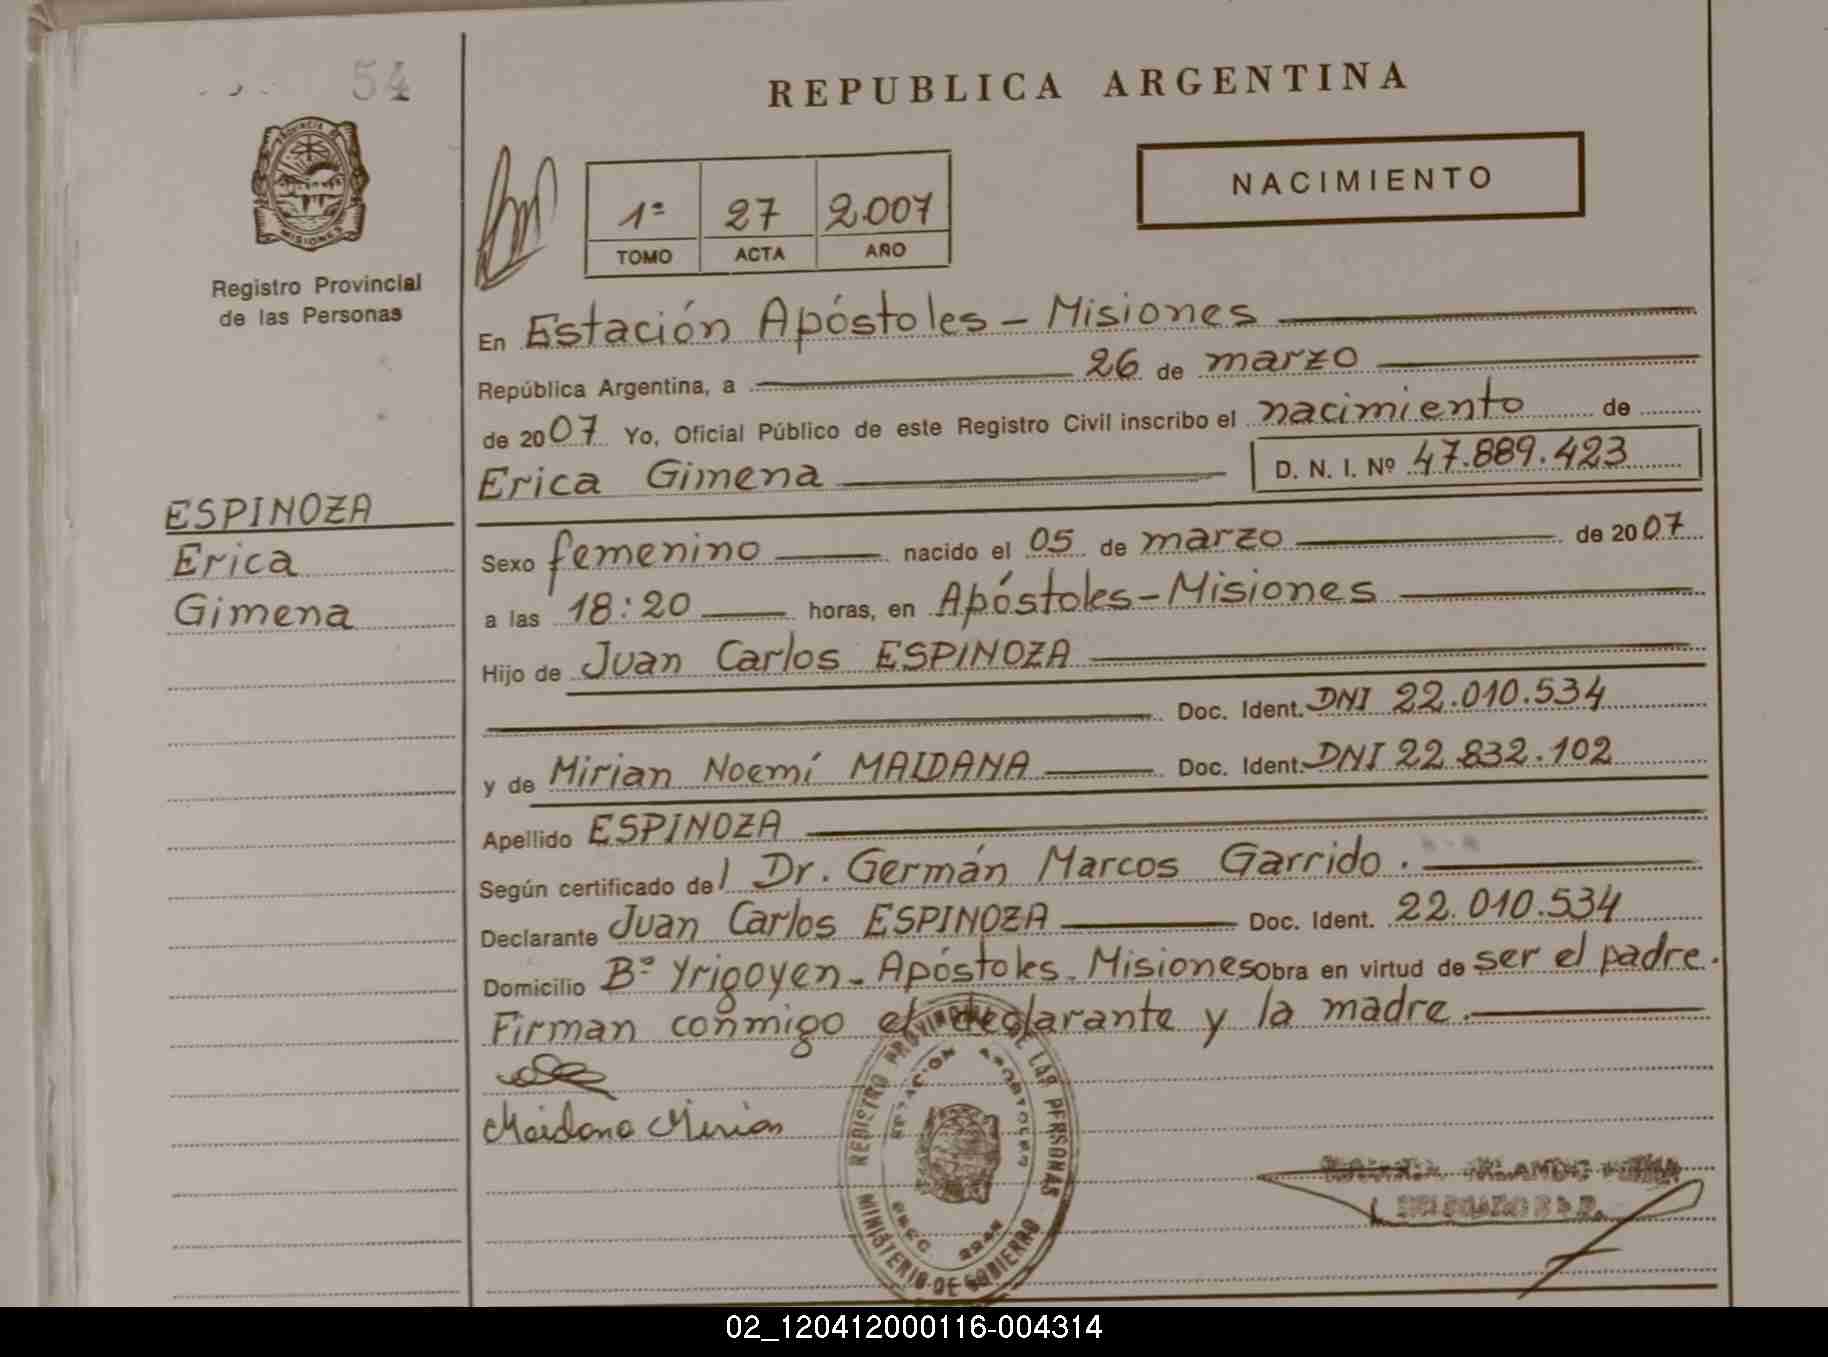 54
REPUBLICA ARGENTINA
PROVINCIA DE
MISIONES
NACIMIENTO
1º 27 2.007
TOMO ACTA AÑO
Registro Provincial
de las Personas
En Estación Apóstoles - Misiones
República Argentina, a 26 de marzo
de 2007 Yo, Oficial Público de este Registro Civil inscribo el nacimiento de
Erica Gimena D. N. I. Nº 47.889.423
ESPINOZA
Erica
Gimena
Sexo femenino nacido el 05 de marzo de 2007
a las 18:20 horas, en Apóstoles - Misiones
Hijo de Juan Carlos ESPINOZA
Doc. Ident. DNI 22.010.534
y de Mirian Noemí MAIDANA Doc. Ident. DNI 22.832.102
Apellido ESPINOZA
Según certificado del Dr. Germán Marcos Garrido.
Declarante Juan Carlos ESPINOZA Doc. Ident. 22.010.534
Domicilio Bº Yrigoyen - Apóstoles - Misiones Obra en virtud de ser el padre.
Firman conmigo el declarante y la madre.
Maidana Mirian
REGISTRO PROVINCIAL DE LAS PERSONAS
ESTACION APOSTOLES
MINISTERIO DE GOBIERNO
02_120412000116-004314